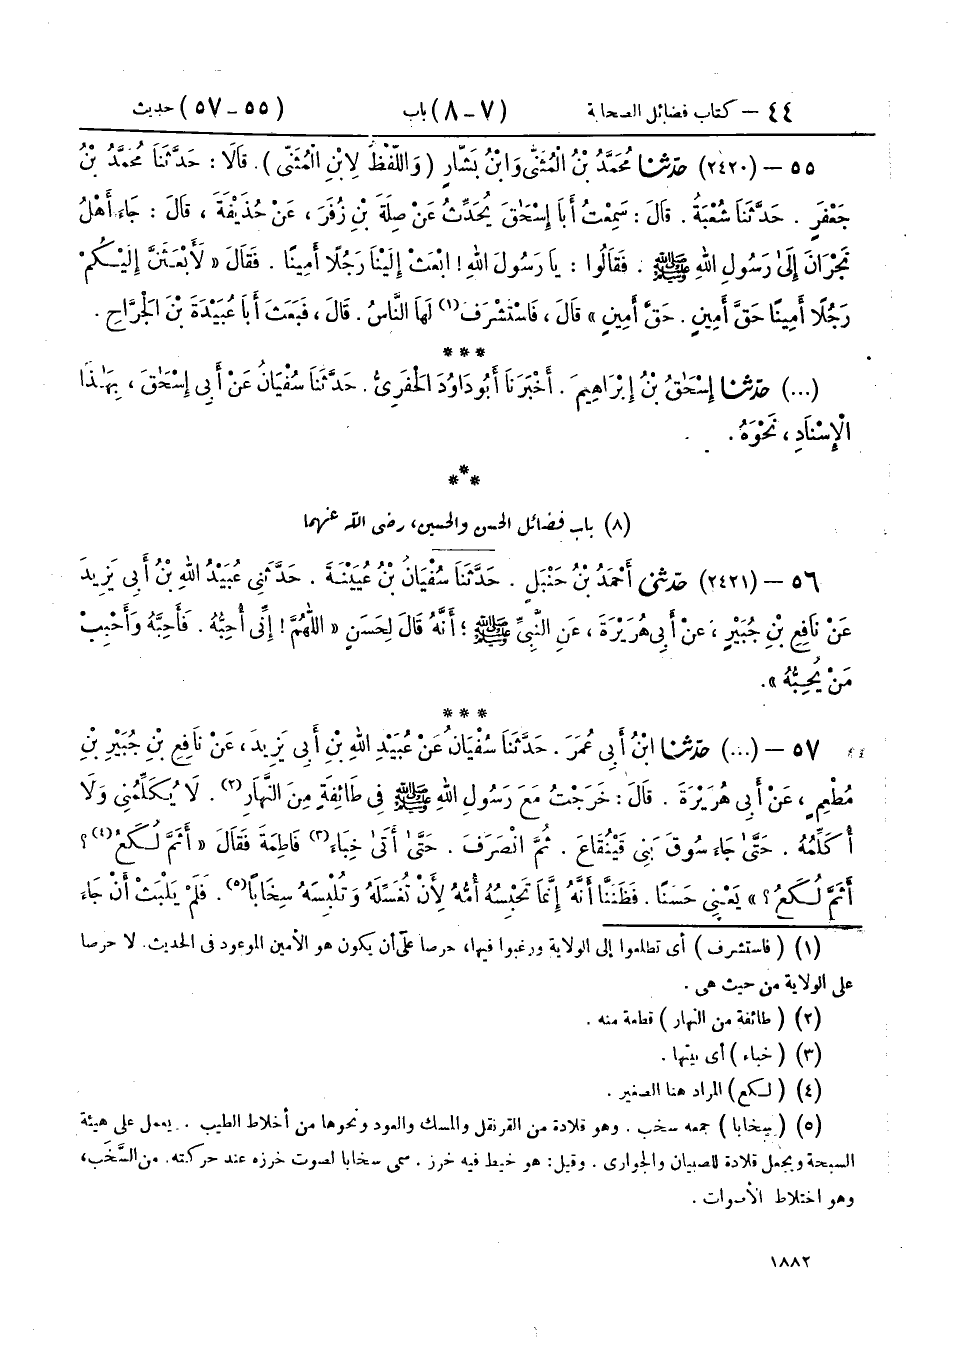 ٤٤ – كتاب فضائل الصحابة (٧ – ٨) باب (٥٥ – ٥٧) حديث
٥٥ – (٢٤٢٠) حَدَّثَنَا مُحَمَّدُ بْنُ الْمُثَنَّى وَابْنُ بَشَّارٍ (وَاللَّفْظُ لِابْنِ الْمُثَنَّى). قَالَا: حَدَّثَنَا مُحَمَّدُ بْنُ
جَعْفَرٍ. حَدَّثَنَا شُعْبَةُ. قَالَ: سَمِعْتُ أَبَا إِسْحَٰقَ يُحَدِّثُ عَنْ صِلَةَ بْنِ زُفَرَ، عَنْ حُذَيْفَةَ، قَالَ: جَاءَ أَهْلُ
نَجْرَانَ إِلَىٰ رَسُولِ اللهِ ﷺ. فَقَالُوا: يَا رَسُولَ اللهِ! ابْعَثْ إِلَيْنَا رَجُلًا أَمِينًا. فَقَالَ «لَأَبْعَثَنَّ إِلَيْكُمْ
رَجُلًا أَمِينًا حَقَّ أَمِينٍ. حَقَّ أَمِينٍ» قَالَ، فَاسْتَشْرَفَ(١) لَهَا النَّاسُ. قَالَ، فَبَعَثَ أَبَا عُبَيْدَةَ بْنَ الْجَرَّاحِ.
* * *
(...) حَدَّثَنَا إِسْحَٰقُ بْنُ إِبْرَاهِيمَ. أَخْبَرَنَا أَبُو دَاوُدَ الْحَفَرِيُّ. حَدَّثَنَا سُفْيَانُ عَنْ أَبِي إِسْحَٰقَ، بِهَٰذَا
الْإِسْنَادِ، نَحْوَهُ.
* * *
(٨) باب فضائل الحسن والحسين، رضى الله عنهما
٥٦ – (٢٤٢١) حَدَّثَنِي أَحْمَدُ بْنُ حَنْبَلٍ. حَدَّثَنَا سُفْيَانُ بْنُ عُيَيْنَةَ. حَدَّثَنِي عُبَيْدُ اللهِ بْنُ أَبِي يَزِيدَ
عَنْ نَافِعِ بْنِ جُبَيْرٍ، عَنْ أَبِي هُرَيْرَةَ، عَنِ النَّبِيِّ ﷺ؛ أَنَّهُ قَالَ لِحَسَنٍ «اللَّهُمَّ! إِنِّي أُحِبُّهُ. فَأَحِبَّهُ وَأَحْبِبْ
مَنْ يُحِبُّهُ».
* * *
٥٧ – (...) حَدَّثَنَا ابْنُ أَبِي عُمَرَ. حَدَّثَنَا سُفْيَانُ عَنْ عُبَيْدِ اللهِ بْنِ أَبِي يَزِيدَ، عَنْ نَافِعِ بْنِ جُبَيْرِ بْنِ
مُطْعِمٍ، عَنْ أَبِي هُرَيْرَةَ. قَالَ: خَرَجْتُ مَعَ رَسُولِ اللهِ ﷺ فِي طَائِفَةٍ مِنَ النَّهَارِ(٢). لَا يُكَلِّمُنِي وَلَا
أُكَلِّمُهُ. حَتَّىٰ جَاءَ سُوقَ بَنِي قَيْنُقَاعَ. ثُمَّ انْصَرَفَ. حَتَّىٰ أَتَىٰ خِبَاءَ(٣) فَاطِمَةَ فَقَالَ «أَثَمَّ لُكَعُ(٤)؟
أَثَمَّ لُكَعُ؟» يَعْنِي حَسَنًا. فَظَنَنَّا أَنَّهُ إِنَّمَا تَحْبِسُهُ أُمُّهُ لِأَنْ تُغَسِّلَهُ وَتُلْبِسَهُ سِخَابًا(٥). فَلَمْ يَلْبَثْ أَنْ جَاءَ
(١) (فاستشرف) أى تطلعوا إلى الولاية ورغبوا فيها، حرصا على أن يكون هو الأمين الموعود فى الحديث. لا حرصا
على الولاية من حيث هى.
(٢) (طائفة من النهار) قطعة منه.
(٣) (خباء) أى بيتها.
(٤) (لكع) المراد هنا الصغير.
(٥) (سخابا) جمعه سخب. وهو قلادة من القرنفل والمسك والعود ونحوها من أخلاط الطيب. يعمل على هيئة
السبحة ويجعل قلادة للصبيان والجوارى. وقيل: هو خيط فيه خرز. سمى سخابا لصوت خرزه عند حركته. من السَّخَب،
وهو اختلاط الأصوات.
١٨٨٢